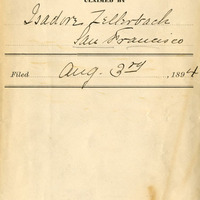 CLAIMED BY
Isadore Zellerbach
San Francisco
Filed Aug. 3rd, 1894